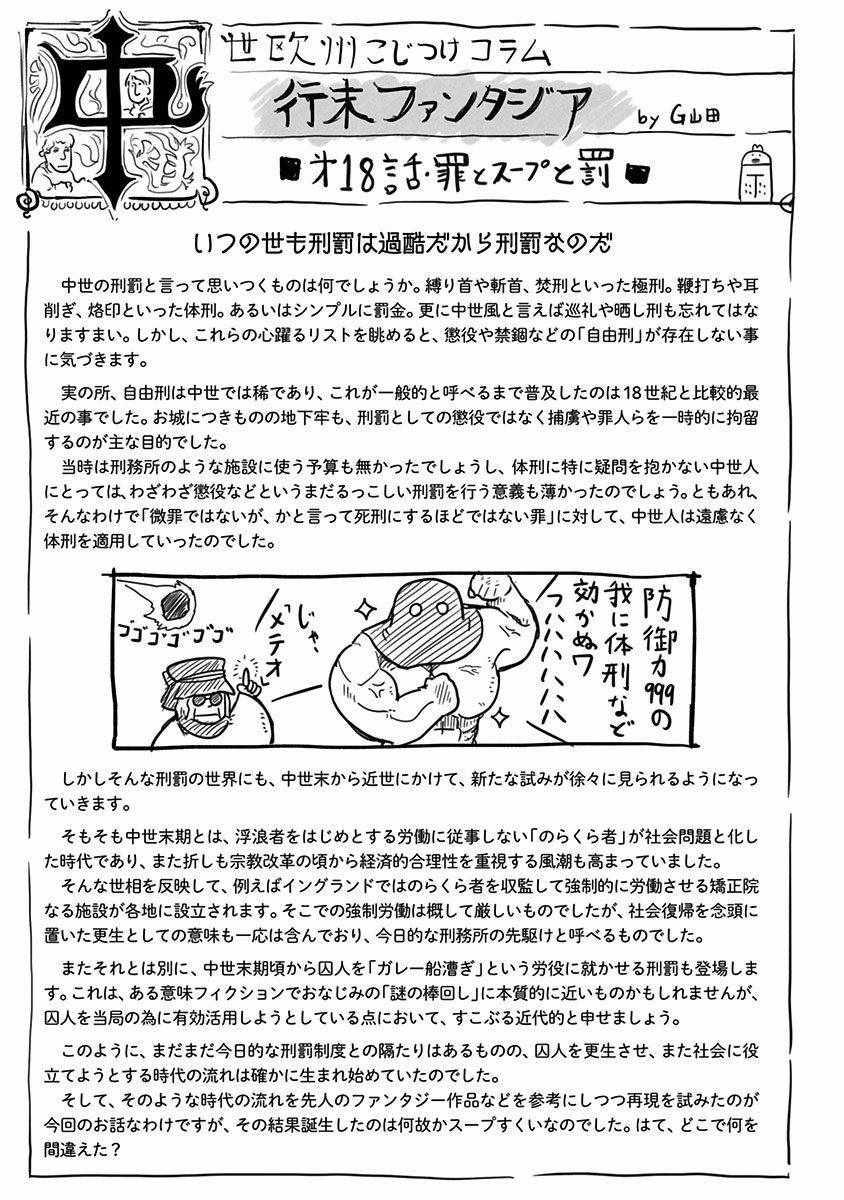 中世欧州こじつけコラム
行末ファンタジア by G山田
■ 才18話・罪とスープと罰 ■
いつの世も刑罰は過酷だから刑罰なのだ
中世の刑罰と言って思いつくものは何でしょうか。縛り首や斬首、焚刑といった極刑。鞭打ちや耳
削ぎ、烙印といった体刑。あるいはシンプルに罰金。更に中世風と言えば巡礼や晒し刑も忘れてはな
りますまい。しかし、これらの心躍るリストを眺めると、懲役や禁錮などの「自由刑」が存在しない事
に気づきます。
実の所、自由刑は中世では稀であり、これが一般的と呼べるまで普及したのは18世紀と比較的最
近の事でした。お城につきものの地下牢も、刑罰としての懲役ではなく捕虜や罪人らを一時的に拘留
するのが主な目的でした。
当時は刑務所のような施設に使う予算も無かったでしょうし、体刑に特に疑問を抱かない中世人
にとっては、わざわざ懲役などというまだるっこしい刑罰を行う意義も薄かったのでしょう。ともあれ、
そんなわけで「微罪ではないが、かと言って死刑にするほどではない罪」に対して、中世人は遠慮なく
体刑を適用していったのでした。
防御力999の
我に体刑など
効かぬワ
フハハハハハ
じゃ、
「メテオ」
ゴゴゴゴゴゴ
しかしそんな刑罰の世界にも、中世末から近世にかけて、新たな試みが徐々に見られるようになっ
ていきます。
そもそも中世末期とは、浮浪者をはじめとする労働に従事しない「のらくら者」が社会問題と化し
た時代であり、また折しも宗教改革の頃から経済的合理性を重視する風潮も高まっていました。
そんな世相を反映して、例えばイングランドではのらくら者を収監して強制的に労働させる矯正院
なる施設が各地に設立されます。そこでの強制労働は概して厳しいものでしたが、社会復帰を念頭に
置いた更生としての意味も一応は含んでおり、今日的な刑務所の先駆けと呼べるものでした。
またそれとは別に、中世末期頃から囚人を「ガレー船漕ぎ」という労役に就かせる刑罰も登場しま
す。これは、ある意味フィクションでおなじみの「謎の棒回し」に本質的に近いものかもしれませんが、
囚人を当局の為に有効活用しようとしている点において、すこぶる近代的と申せましょう。
このように、まだまだ今日的な刑罰制度との隔たりはあるものの、囚人を更生させ、また社会に役
立てようとする時代の流れは確かに生まれ始めていたのでした。
そして、そのような時代の流れを先人のファンタジー作品などを参考にしつつ再現を試みたのが
今回のお話なわけですが、その結果誕生したのは何故かスープすくいなのでした。はて、どこで何を
間違えた？